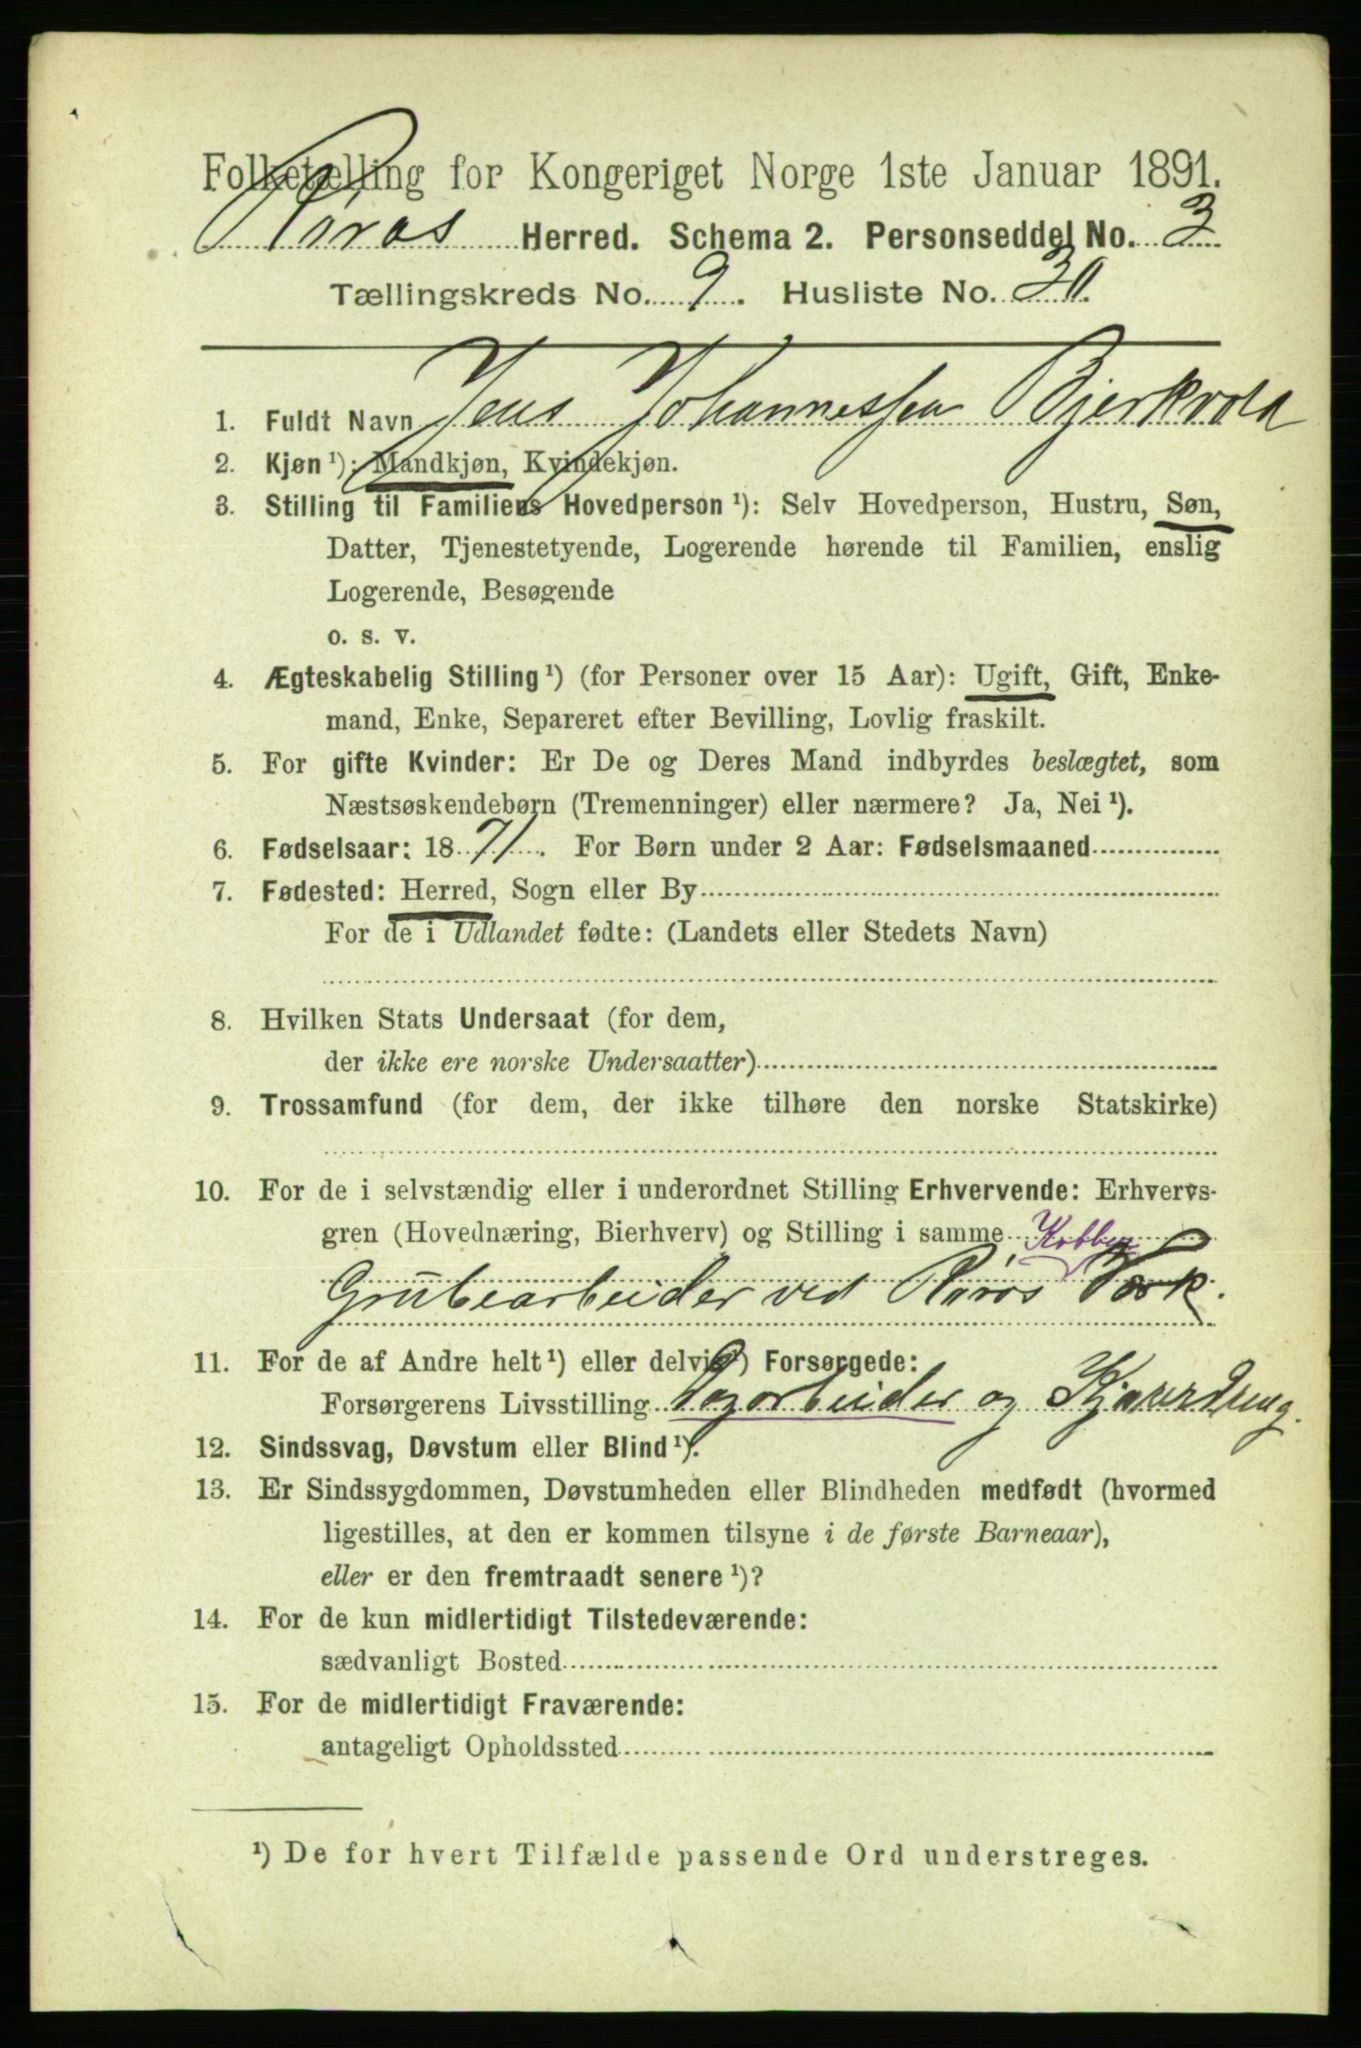 Folketælling for Kongeriget Norge 1ste Januar 1891.
Röros Herred. Schema 2. Personseddel No. 3
Tællingskreds No. 9. Husliste No. 30.
1. Fuldt Navn Jens Johannessen Bjerkvold
2. Kjøn¹): Mandkjøn, Kvindekjøn.
3. Stilling til Familiens Hovedperson¹): Selv Hovedperson, Hustru, Søn,
Datter, Tjenestetyende, Logerende hørende til Familien, enslig
Logerende, Besøgende
o. s. v.
4. Ægteskabelig Stilling¹) (for Personer over 15 Aar): Ugift, Gift, Enke-
mand, Enke, Separeret efter Bevilling, Lovlig fraskilt.
5. For gifte Kvinder: Er De og Deres Mand indbyrdes beslægtet, som
Næstsøskendebørn (Tremenninger) eller nærmere? Ja, Nei¹).
6. Fødselsaar: 1871. For Børn under 2 Aar: Fødselsmaaned
7. Fødested: Herred, Sogn eller By
For de i Udlandet fødte: (Landets eller Stedets Navn)
8. Hvilken Stats Undersaat (for dem,
der ikke ere norske Undersaatter)
9. Trossamfund (for dem, der ikke tilhøre den norske Statskirke)
10. For de i selvstændig eller i underordnet Stilling Erhvervende: Erhvervs-
gren (Hovednæring, Bierhverv) og Stilling i samme Kobber
Grubearbeider ved Röros Værk.
11. For de af Andre helt¹) eller delvis¹) Forsørgede:
Forsørgerens Livsstilling og
12. Sindssvag, Døvstum eller Blind¹).
13. Er Sindssygdommen, Døvstumheden eller Blindheden medfødt (hvormed
ligestilles, at den er kommen tilsyne i de første Barneaar),
eller er den fremtraadt senere¹)?
14. For de kun midlertidigt Tilstedeværende:
sædvanligt Bosted
15. For de midlertidigt Fraværende:
antageligt Opholdssted
¹) De for hvert Tilfælde passende Ord understreges.